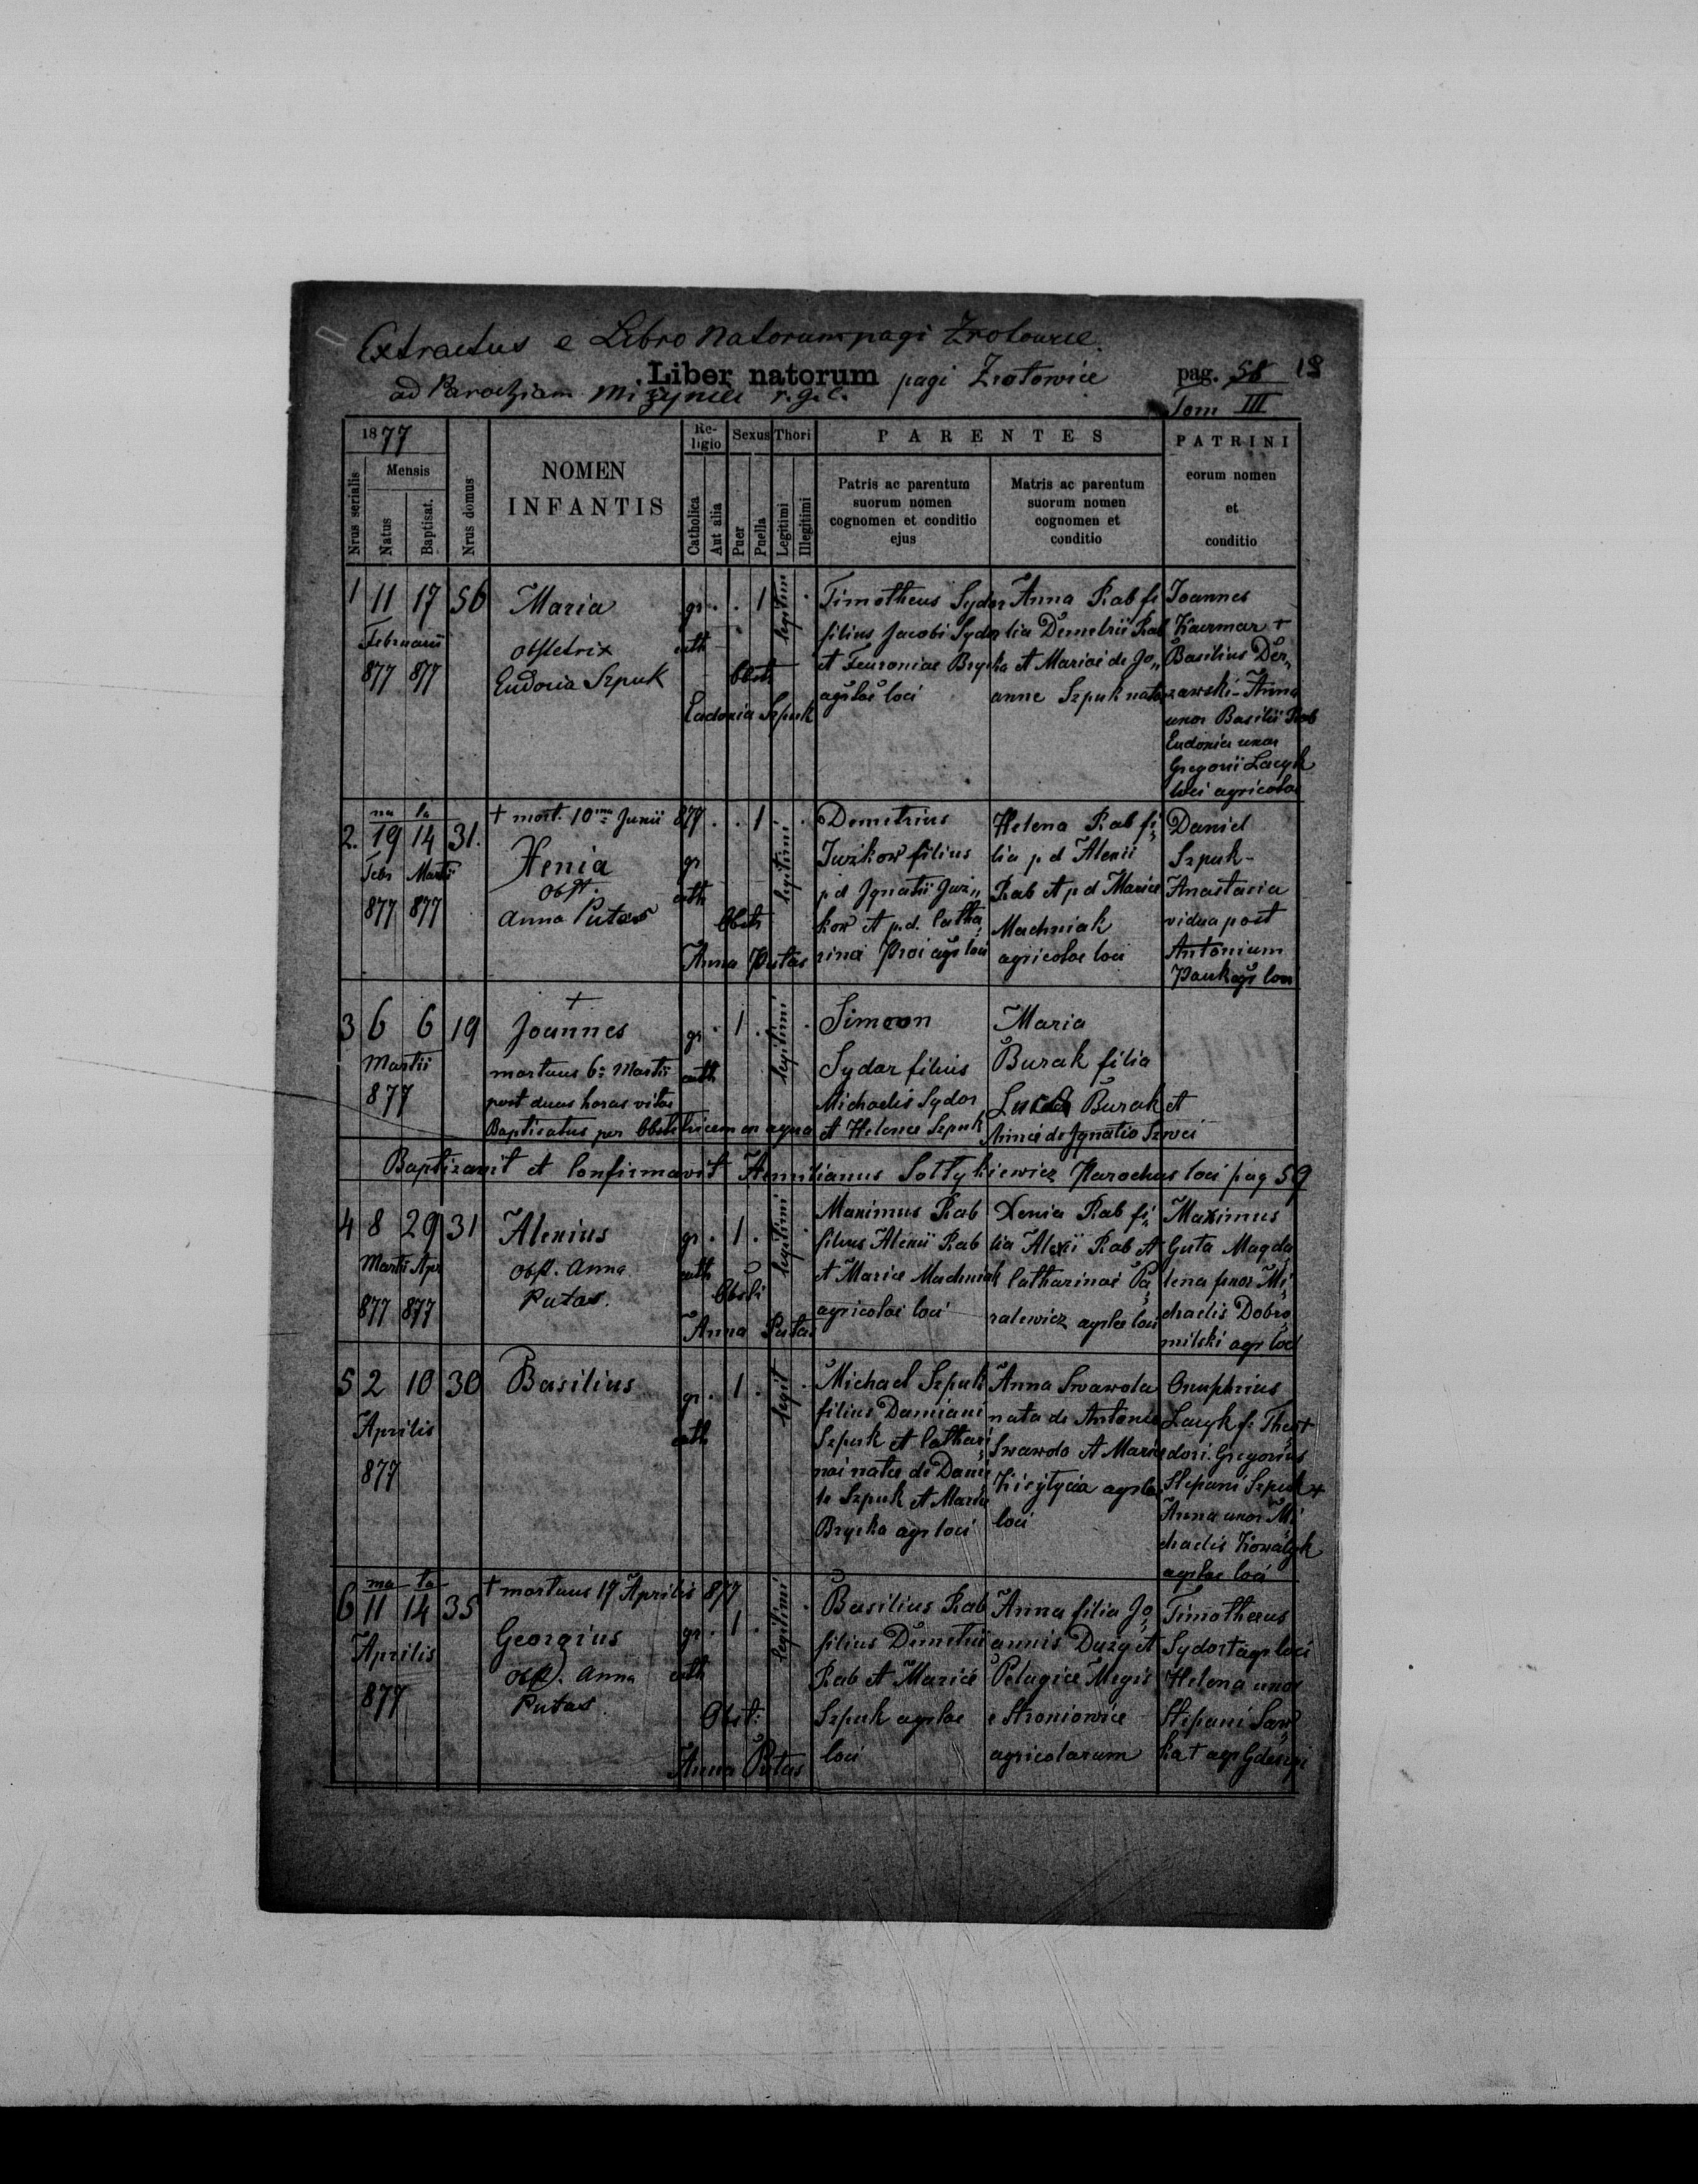 Extractus e Libro Natorum pagi Zrotowice
Liber natorum pagi Zrotowice pag. 58 18
ad Parochiam Miżyniec r. g. c. Tom III
1877
Nrus serialis
Mensis
Natus
Baptisat.
Nrus domus
NOMEN
INFANTIS
Re-
ligio
Catholica
Aut alia
Sexus
Puer
Puella
Thori
Legitimi
Illegitimi
PARENTES
Patris ac parentum
suorum nomen
cognomen et conditio
ejus
Matris ac parentum
suorum nomen
cognomen et
conditio
PATRINI
eorum nomen
et
conditio
1 11 17 56
Februarii
877 877
Maria
obstetrix
Eudoxia Szpuk
gr. . . 1 legitimi .
cath
Obst:
Eudoxia Szpuk
Timotheus Sydor
filius Jacobi Sydor
et Feuroniae Brycka
agrlae loci
Anna Rab fi
lia Demetrii Rab
et Mariae de Jo„
anne Szpuk nata
Joannes
Kaczmar +
Basilius Der„
zawski - Anna
uxor Basilii Rab
Eudoxia uxor
Gregorii Lacyk
loci agricolae
2. na 19 ta 14 31.
Febr Martii
877 877
+ mort. 10ma Junii 877
Xenia
obst.
Anna Putas
. . 1 legitimi .
gr
cath
Obst:
Anna Putas
Demetrius
Juzkow filius
p d Ignatii Juz„
kow et p.d. Catha
rinae Proi agr loci
Helena Rab fi„
lia p d Alexii
Rab et p d Maria
Machniak
agricolae loci
Daniel
Szpuk -
Anastasia
vidua post
Antonium
Pauk agr loci
3 6 6 19
Martii
877
+
Joannes
mortuus 6ta Martii
post duas horas vitae
Baptisatus per Obstetricem ex aqua
gr . 1 . legitimi .
cath
Simeon
Sydor filius
Michaelis Sydor
et Helenae Szpuk
Maria
Burak filia
Lucae Burak et
Annae de Ignatio
Baptizavit et Confirmavit Aemilianus Sołtykiewicz Parochus loci pag 59
4 8 29 31
Martii Apr
877 877
Alexius
obst. Anna
Putas.
gr . 1 . legitimi .
cath
Obst:
Anna Putas
Maximus Rab
filius Alexii Rab
et Mariae Machniak
agricolae loci
Xenia Rab fi„
lia Alexii Rab et
Catharinae Pa„
ralewicz agrlae loci
Maximus
Guta Magda
lena uxor Mi„
chaelis Dobro„
milski agr loci
5 2 10 30
Aprilis
877
Basilius
gr . 1 . legit .
cath
Michael Szpuk
filius Damiani
Szpuk et Cathari„
nae natae de Danie
le Szpuk et Maria
Brycka agr loci
Anna Swawola
nata de Antonio
Swawolo et Maria
agrlae
loci
Onuphrius
Lacyk f. Theo+
dori. Gregorius
Stepani Szpuk +
Anna uxor Mi
chaelis Kowalyk
agrlae loci
6 ma 11 ta 14 35
Aprilis
877
+ mortuus 17 Aprilis 877
Georgius
obst. Anna
Putas.
gr . 1 . legitimi .
cath
Obst:
Anna Putas
Basilius Rab
filius Demetrii
Rab et Mariae
Szpuk agrlae
loci
Anna filia Jo„
annis Duzy et
Pelagiae Megis
e Stroniowice
agricolarum
Timotheus
Sydor + agr loci
Helena uxor
Stepani Saw
ka + agr